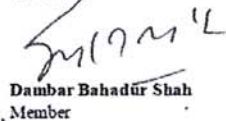 Dambar Bahadur Shah
Member